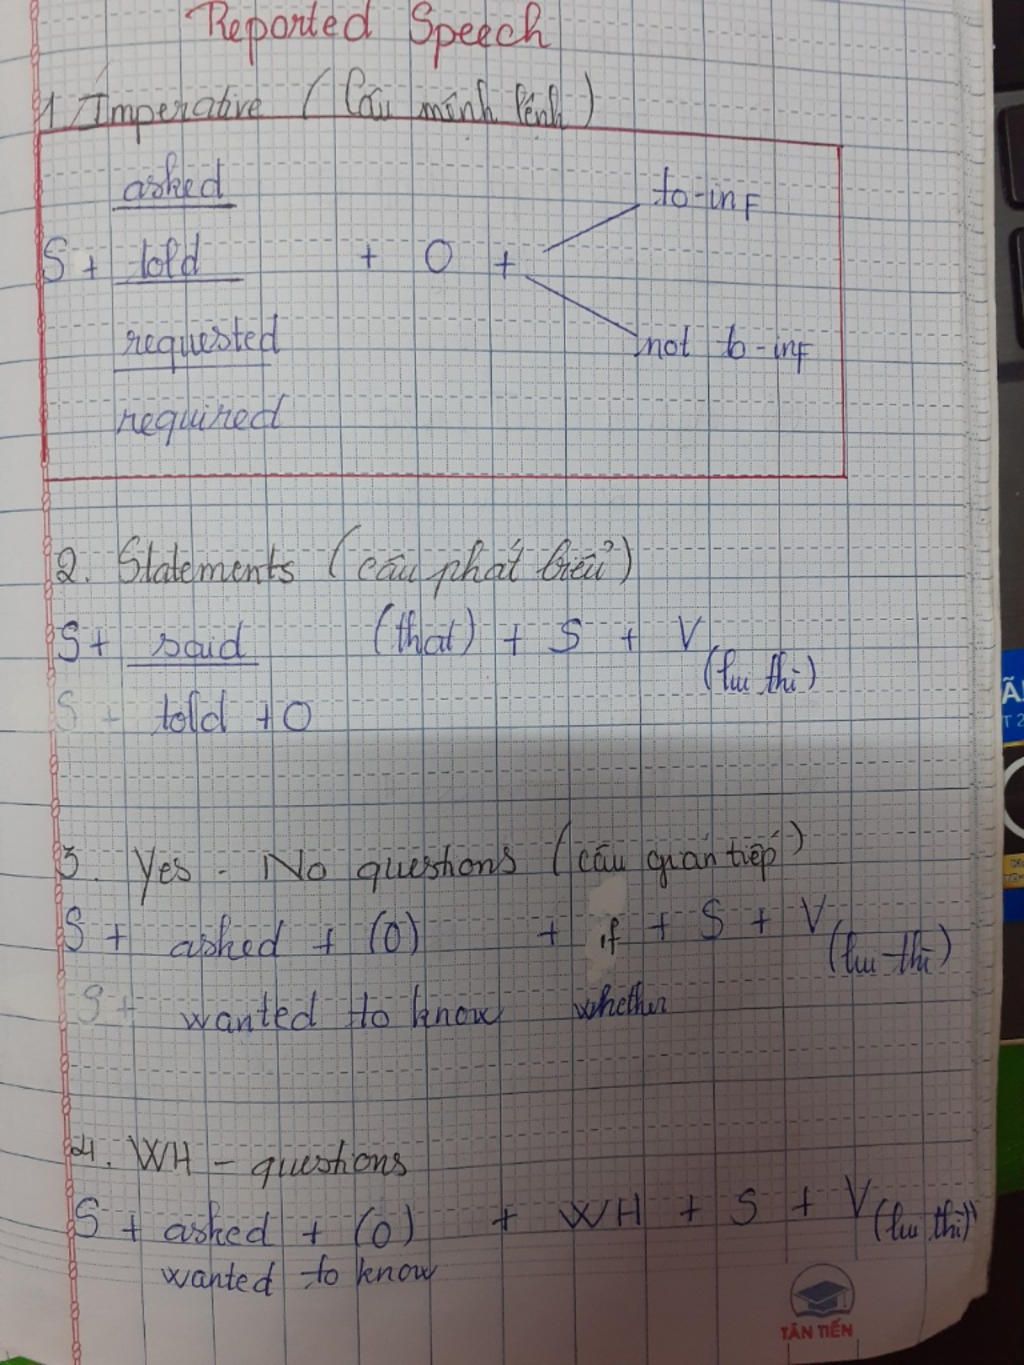 Reported Speech
1. Imperative (Câu mệnh lệnh)
asked
to-inf
S + told + O +
requested
not to-inf
required
2. Statements (câu phát biểu)
S + said (that) + S + V
(lui thì)
S + told + O
3. Yes - No questions (câu gián tiếp)
S + asked + (O) + if + S + V
(lui thì)
S + wanted to know whether
4. WH - questions
S + asked + (O) + WH + S + V
(lui thì)
wanted to know
TÂN TIẾN